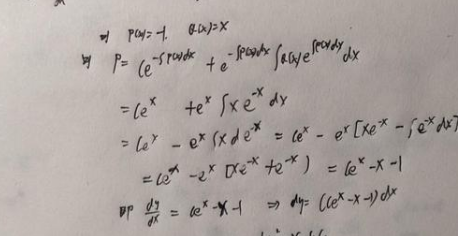 ⇒ P(x)=-1. Q(x)=x
⇒ P = Ce^{-∫P(x)dx} + e^{-∫P(x)dx} ∫Q(x)e^{∫P(x)dx}dx
= Ce^x + e^x ∫xe^{-x}dx
= Ce^x - e^x ∫x de^{-x} = Ce^x - e^x [xe^{-x} - ∫e^{-x}dx]
= Ce^x - e^x (xe^{-x} + e^{-x}) = Ce^x - x - 1
即 dy/dx = Ce^x - x - 1 ⇒ dy = (Ce^x - x - 1) dx